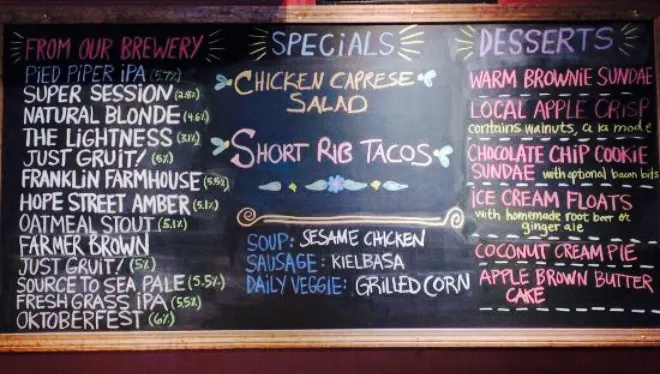 FROM OUR BREWERY
PIED PIPER IPA (5.7%)
SUPER SESSION (2.8%)
NATURAL BLONDE (4.6%)
THE LIGHTNESS (3.1%)
JUST GRUIT! (6%)
FRANKLIN FARMHOUSE (5.5%)
HOPE STREET AMBER (5.1%)
OATMEAL STOUT (5.1%)
FARMER BROWN
JUST GRUIT! (5%)
SOURCE TO SEA PALE (5.5%)
FRESH GRASS IPA (5.5%)
OKTOBERFEST (6%)
SPECIALS
CHICKEN CAPRESE
SALAD
SHORT RIB TACOS
SOUP: SESAME CHICKEN
SAUSAGE: KIELBASA
DAILY VEGGIE: GRILLED CORN
DESSERTS
WARM BROWNIE SUNDAE
LOCAL APPLE CRISP
contains walnuts, a la mode
CHOCOLATE CHIP COOKIE
SUNDAE with optional bacon bits
ICE CREAM FLOATS
with homemade root beer or
ginger ale
COCONUT CREAM PIE
APPLE BROWN BUTTER
CAKE